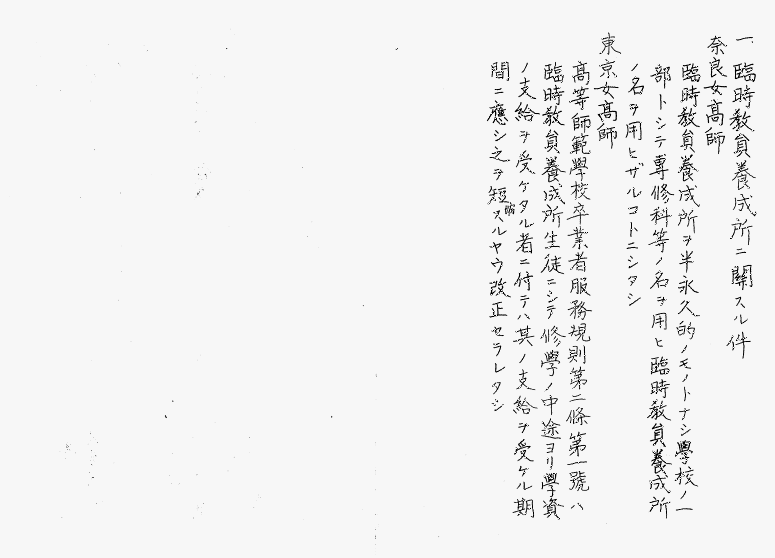 一、臨時教員養成所ニ關スル件
奈良女高師
臨時教員養成所ヲ半永久的ノモノトナシ學校ノ一
部トシテ專修科等ノ名ヲ用ヒ臨時教員養成所
ノ名ヲ用ヒザルコトニシタシ
東京女高師
高等師範學校卒業者服務規則第二條第一號ハ
臨時教員養成所生徒ニシテ修學ノ中途ヨリ學資
ノ支給ヲ受ケタル者ニ付テハ其ノ支給ヲ受ケル期
間ニ應シ之ヲ短縮スルヤウ改正セラレタシ